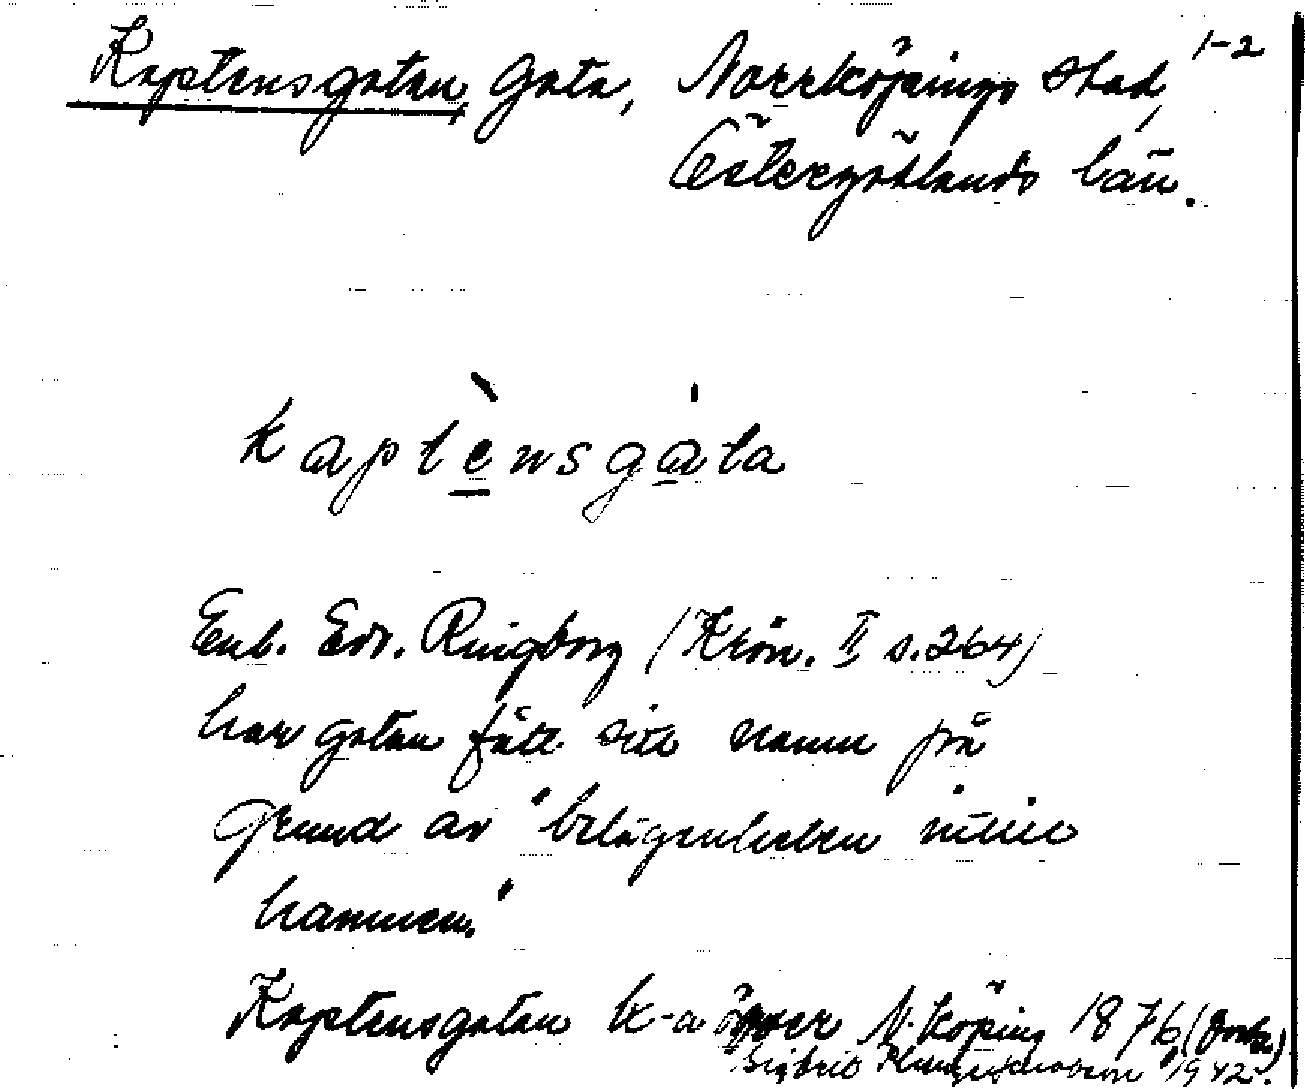 Kaptensgatan, Gata, Norrköpings stad, 1-2
Östergötlands län.
kaptènsgàta
Enl. Edv. Ringborg (Krön. II s. 264)
har gatan fått sitt namn på
grund av "belägenheten intill
hamnen."
Kaptensgatan k-a över N-köping 1876,
Sigbrit 1942.